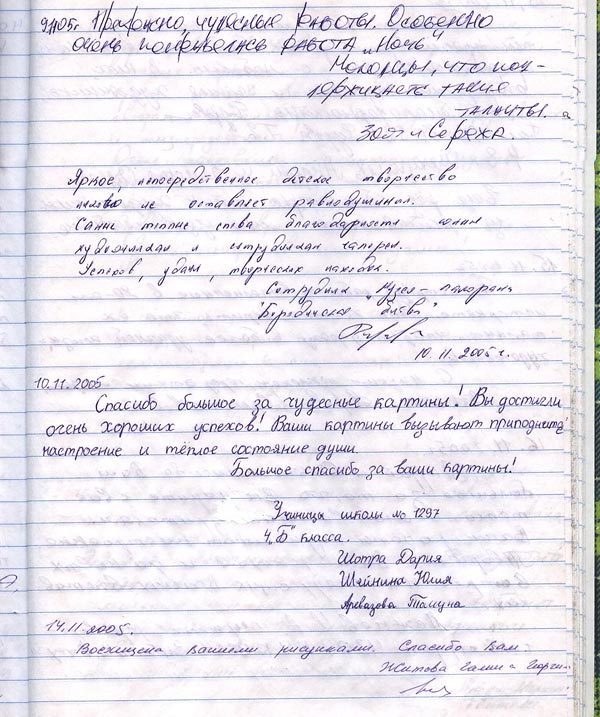 9.11.05г. Прекрасно, чудесные работы. Особенно
очень понравилась работа „Ночь"
Молодцы, что под-
держиваете такие
таланты.
Зоя и Сережа.
Яркое, непосредственное детское творчество
никого не оставляет равнодушным.
Самые теплые слова благодарности юным
художникам и сотрудникам галереи.
Успехов, удачи, творческих находок.
Сотрудники музея-панорамы
"Бородинская битва"
10.11.2005 г.
10.11.2005
Спасибо большое за чудесные картины! Вы достигли
очень хороших успехов! Ваши картины вызывают приподнятое
настроение и тёплое состояние души.
Большое спасибо за ваши картины!
Ученицы школы № 1297
4 „Б" класса.
Шотра Дария
Шейнина Юлия
14.11.2005.
Восхищена вашими рисунками. Спасибо Вам.
Житова Галина